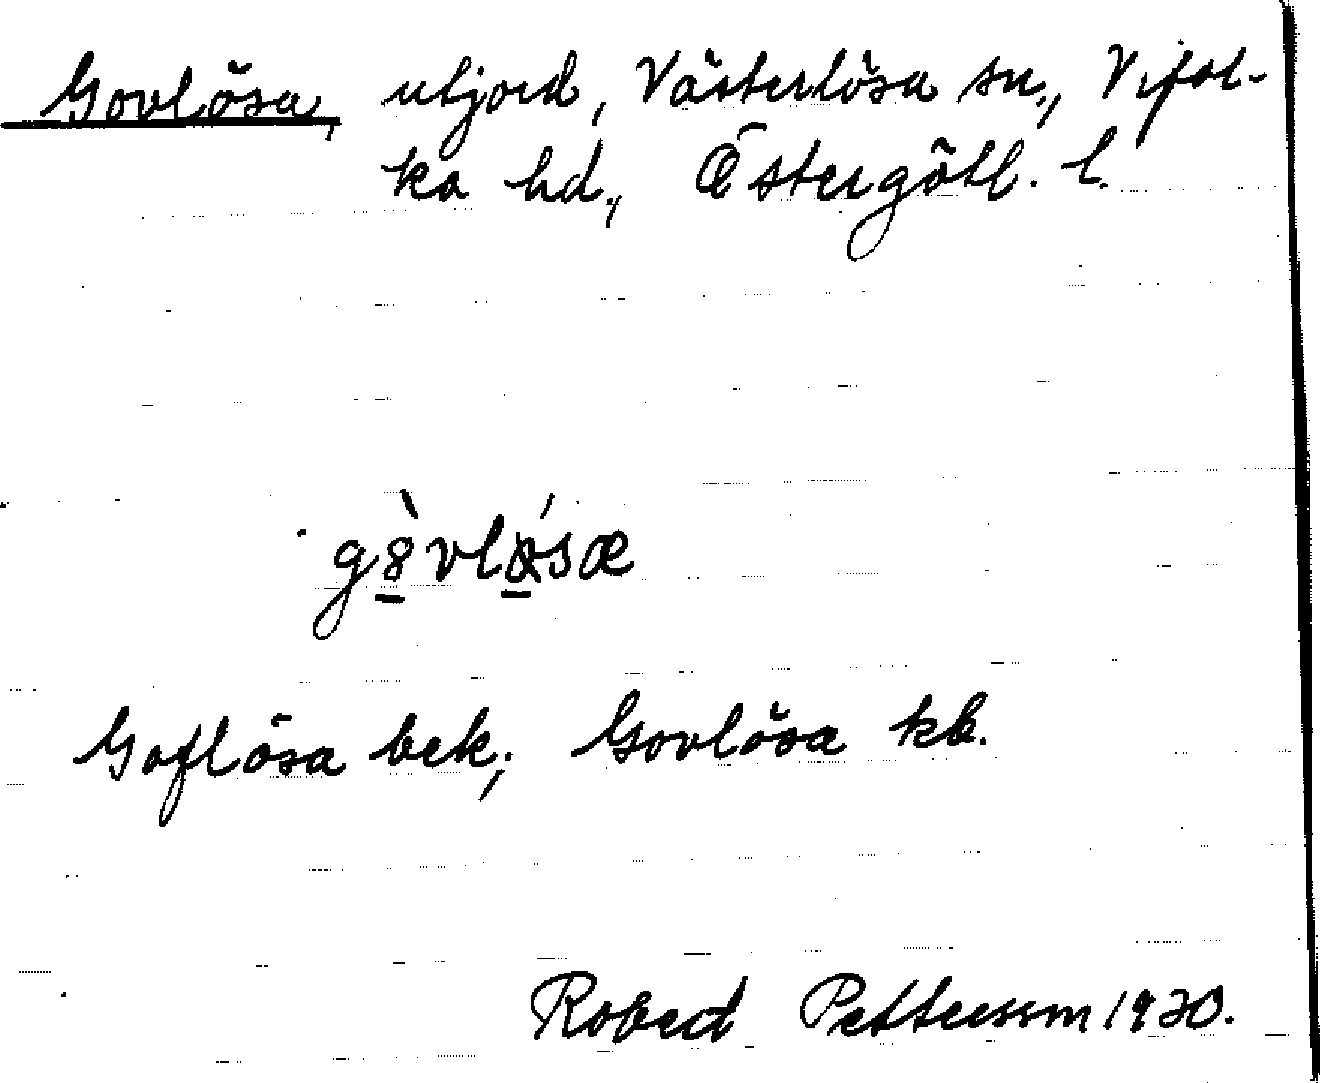 Govlösa, utjord, Västerlösa sn., Vifol-
ka hd., Östergötl. l.
g8̀vlǿsæ
Goflösa bek; Govlösa kb.
Robert Pettersson 1930.